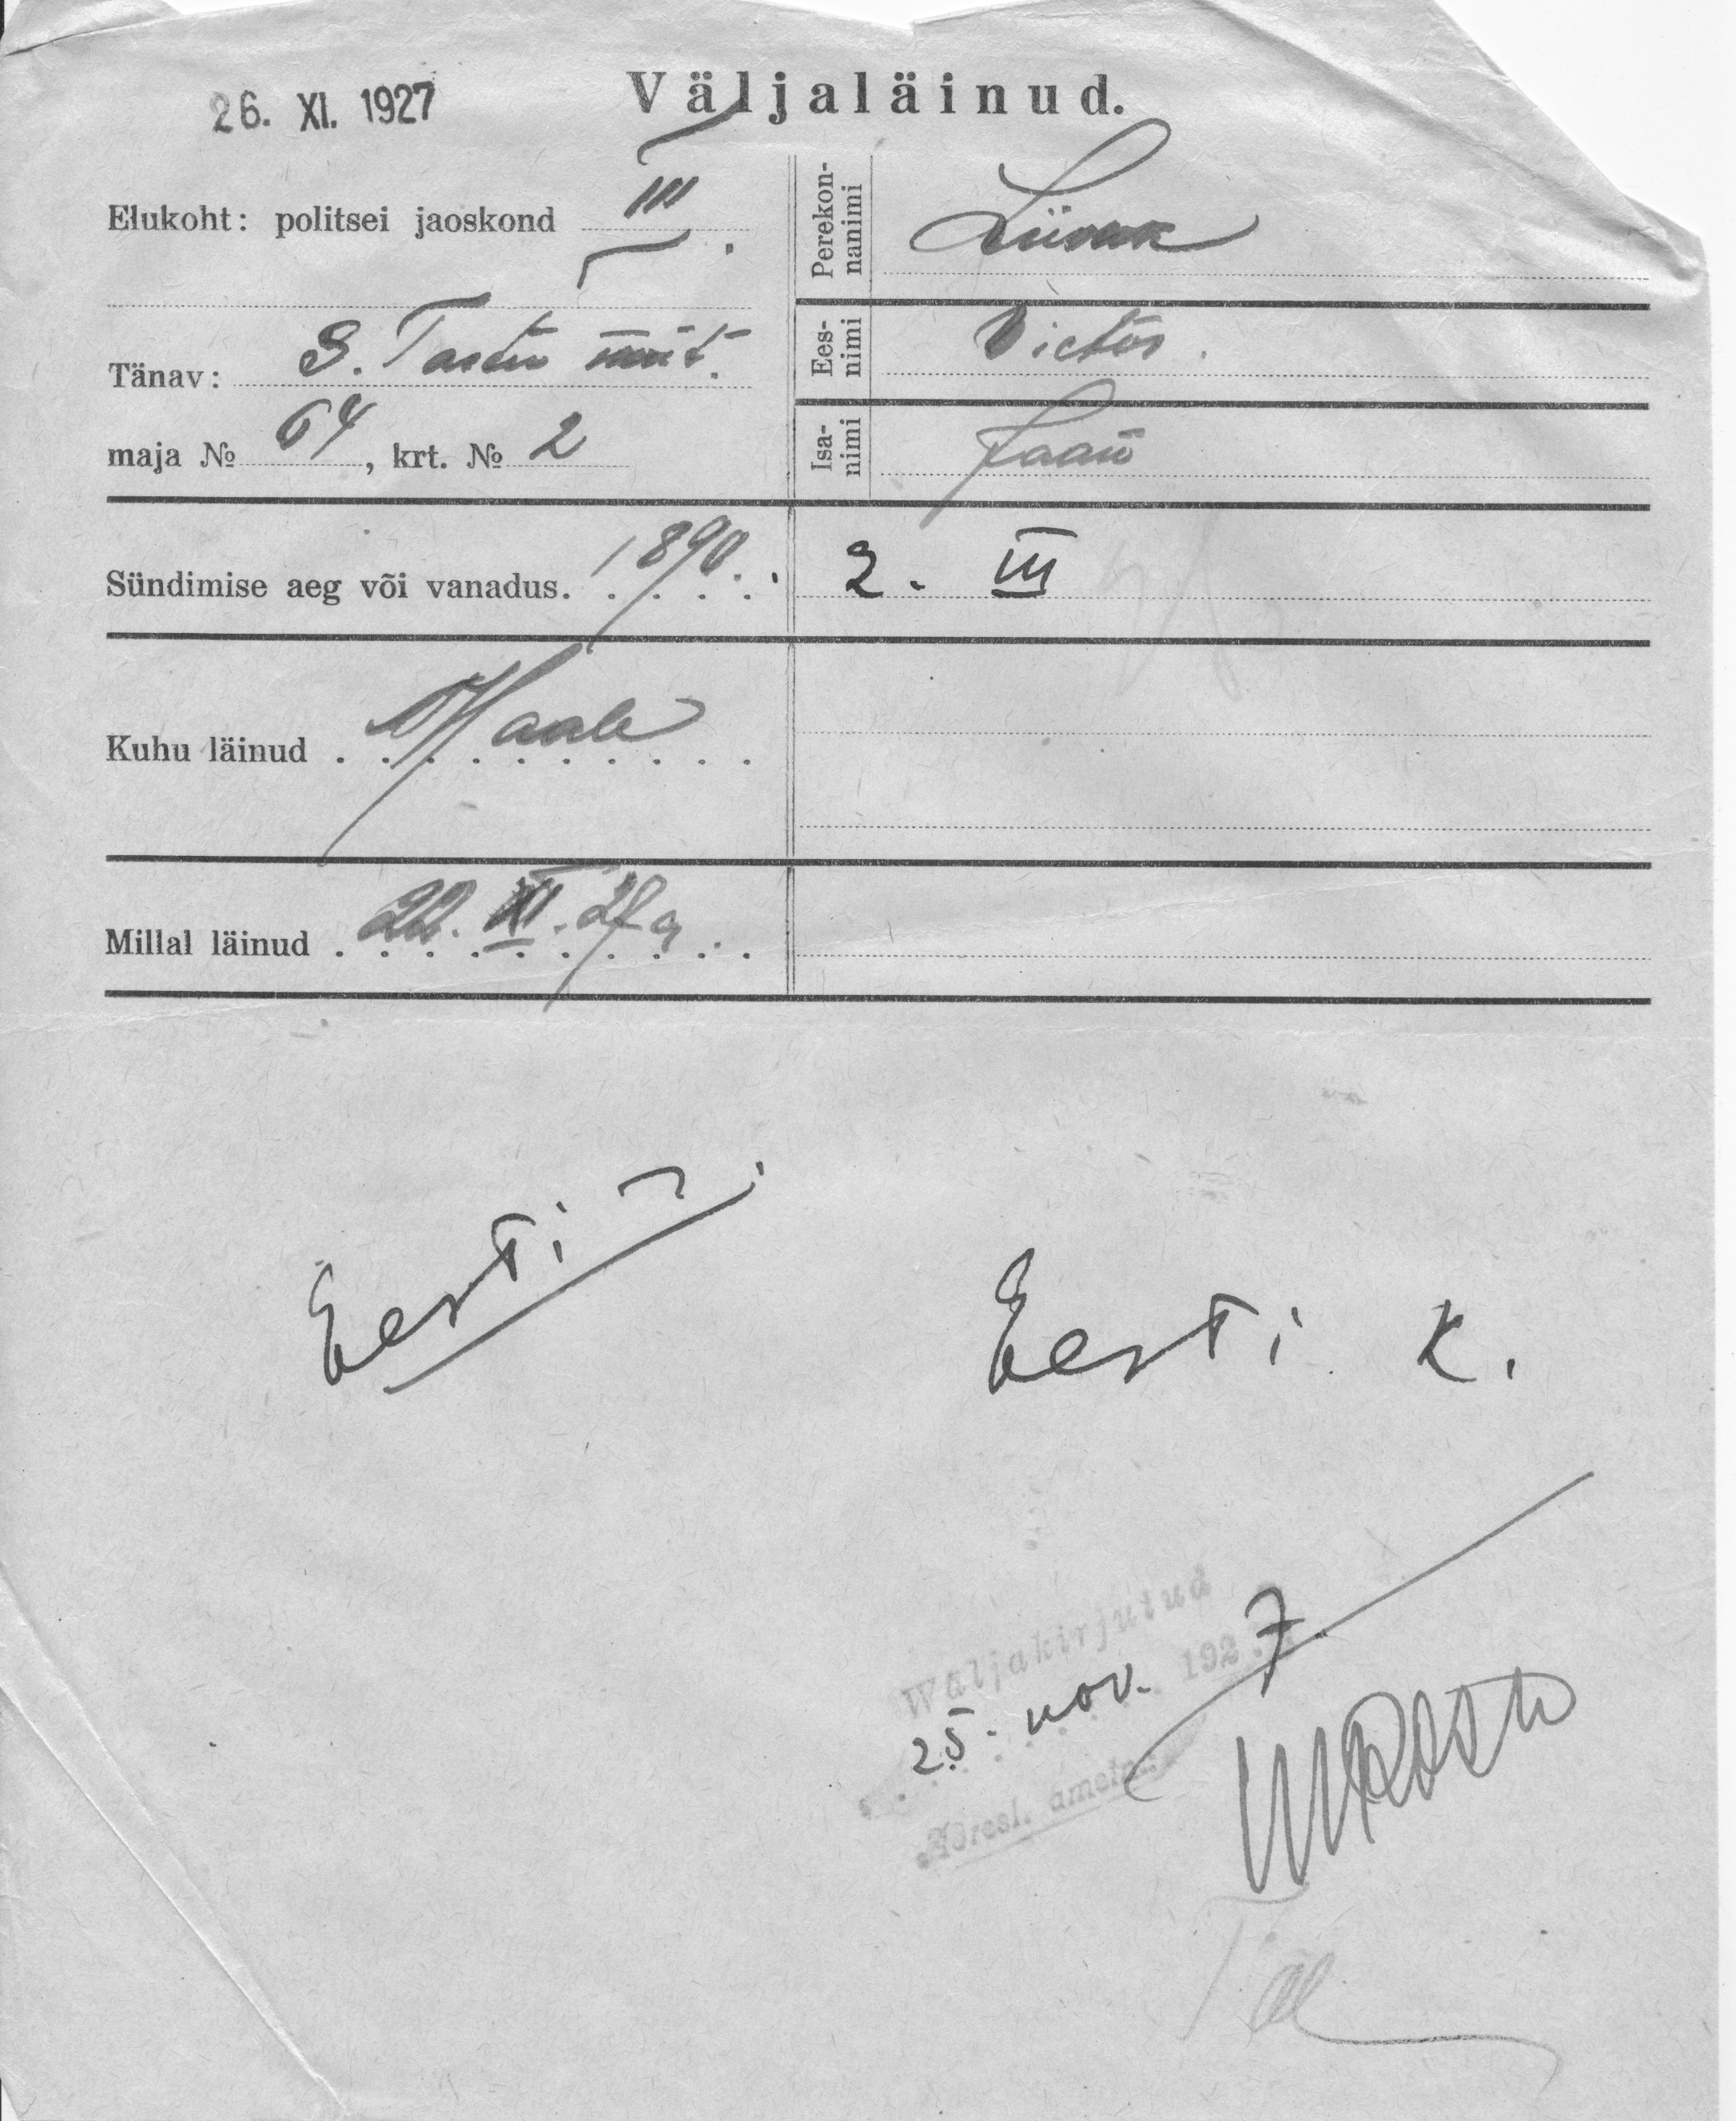 26. XI. 1927
Väljaläinud.
Elukoht: politsei jaoskond III.
Tänav: S. Tartu mnt.
maja № 64, krt. № 2
Perekonnanimi Liivak
Eesnimi Victor.
Isanimi Jaan
Sündimise aeg või vanadus. 1890. 2. III
Kuhu läinud Maale
Millal läinud 22. XI. 27 a.
Eesti
Eesti k.
Wäljakirjutud
25. nov. 1927
Adresl. ametn.